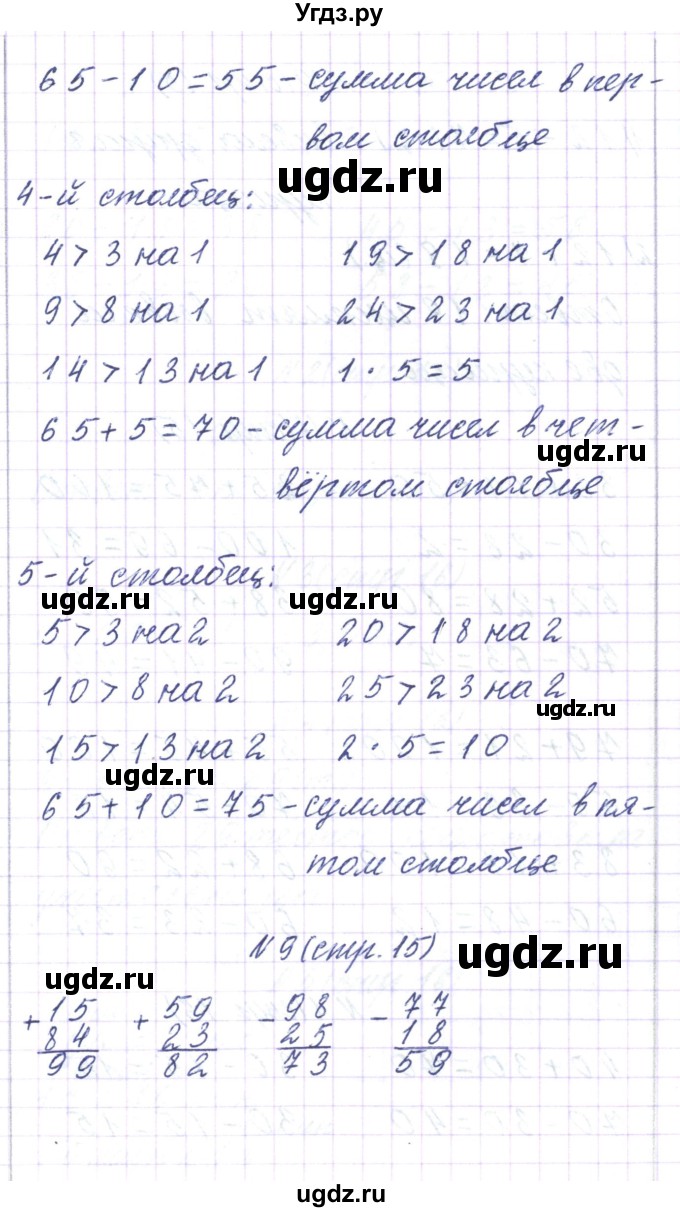 Угдз.ру
65-10=55-сумма чисел в пер-
вом столбце
ugdz.ru
4-й столбец:
4>3 на 1 19>18 на 1
9>8 на 1 24>23 на 1
14>13 на 1 1·5=5
65+5=70-сумма чисел в чет-
ugdz.ru
вёртом столбце
5-й столбец:
ugdz.ru ugdz.ru
5>3 на 2 20>18 на 2
10>8 на 2 25>23 на 2
ugdz.ru
15>13 на 2 2·5=10
ugdz.ru
65+10=75-сумма чисел в пя-
том столбце
N9 (стр. 15)
+15 +59 -98 -77
84 23 25 18
99 82 73 59
ugdz.ru